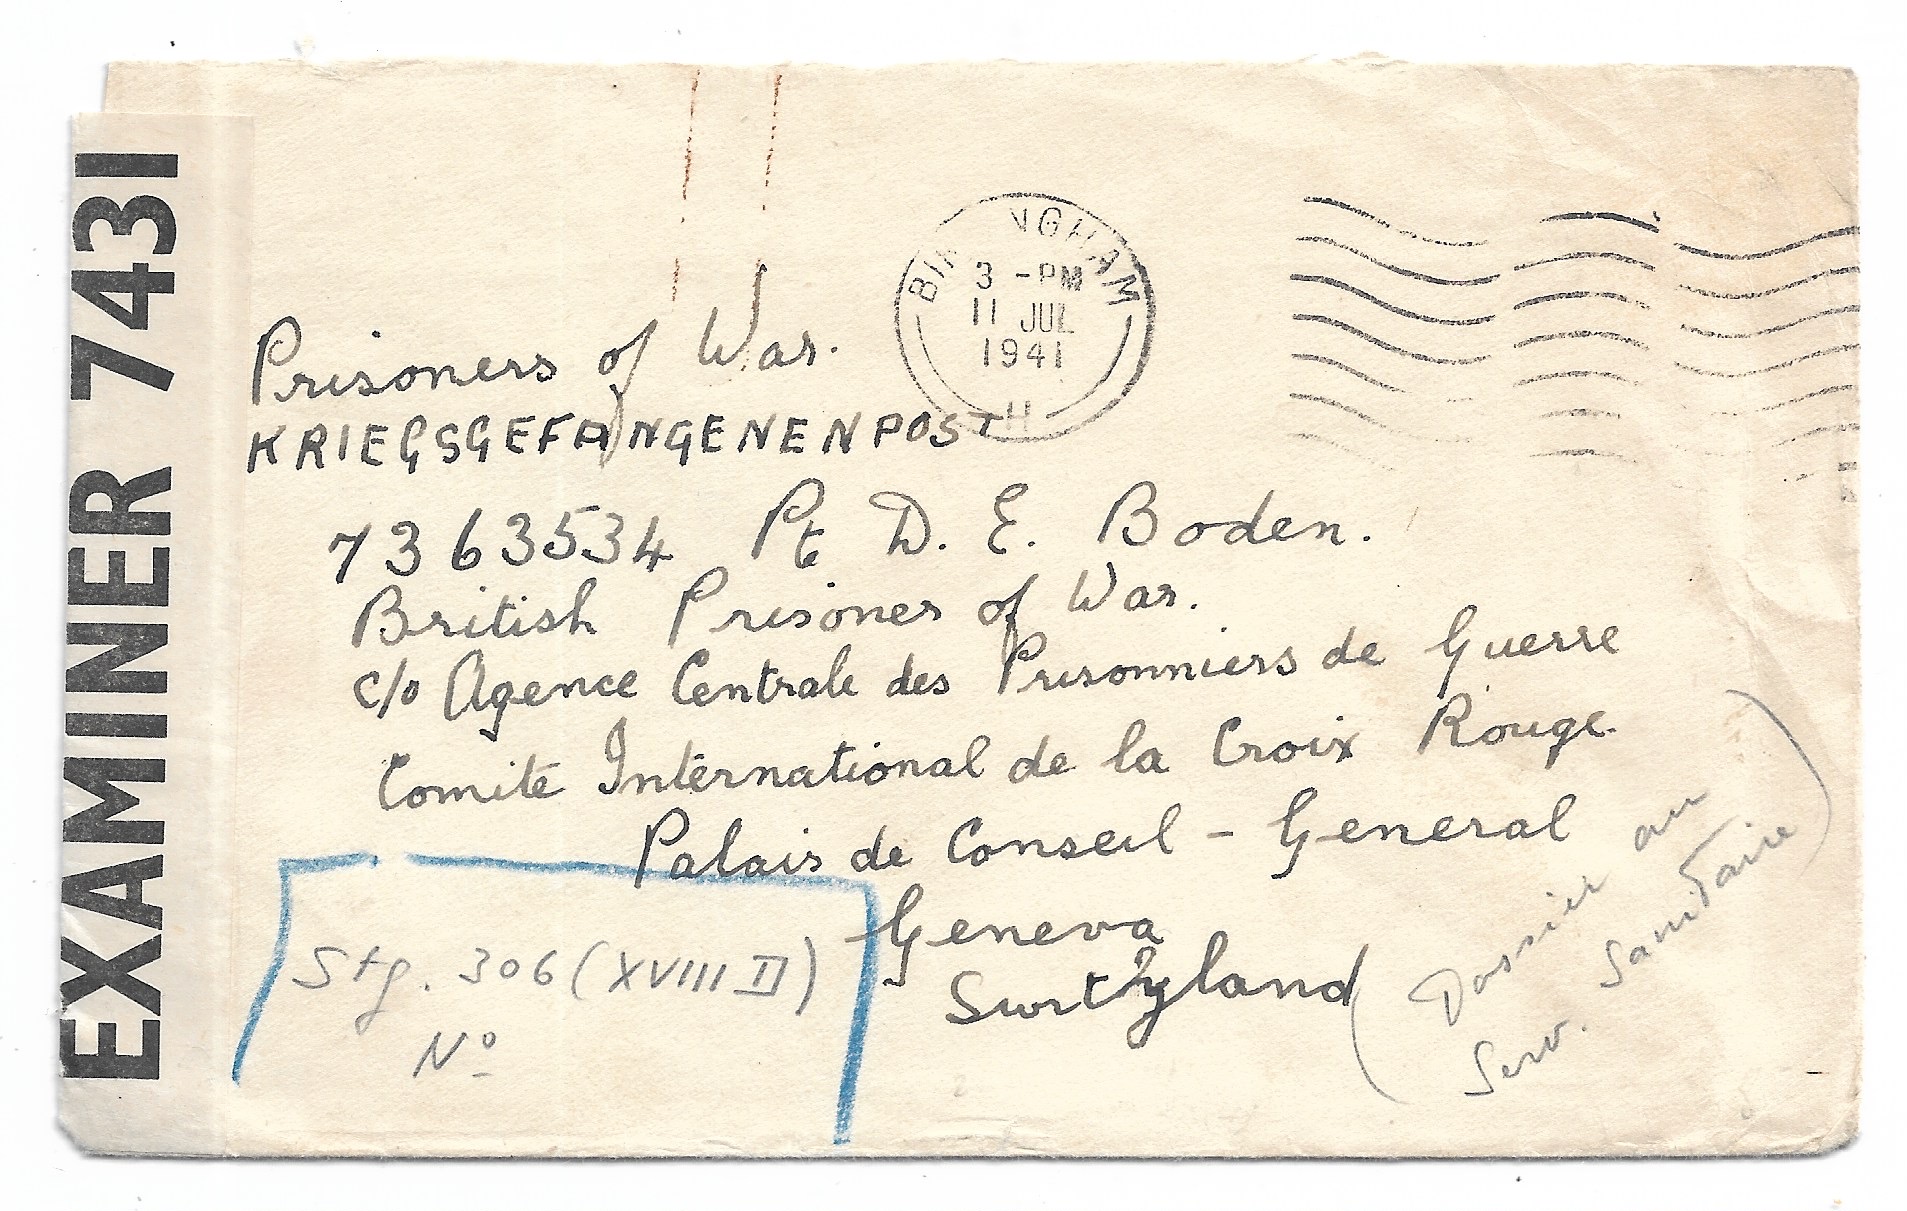 EXAMINER 7431
BIRMINGHAM
3 - PM
11 JUL
1941
H
Prisoners of War.
KRIEGSGEFANGENENPOST
7363534 Pt D. E. Boden.
British Prisoner of War.
c/o Agence Centrale des Prisonniers de Guerre
Comité International de la Croix Rouge.
Palais de Conseil - General
Geneva
Switzyland
Stg. 306 (XVIII D)
Nº
(Dossier au
Serv. Sanitaire)